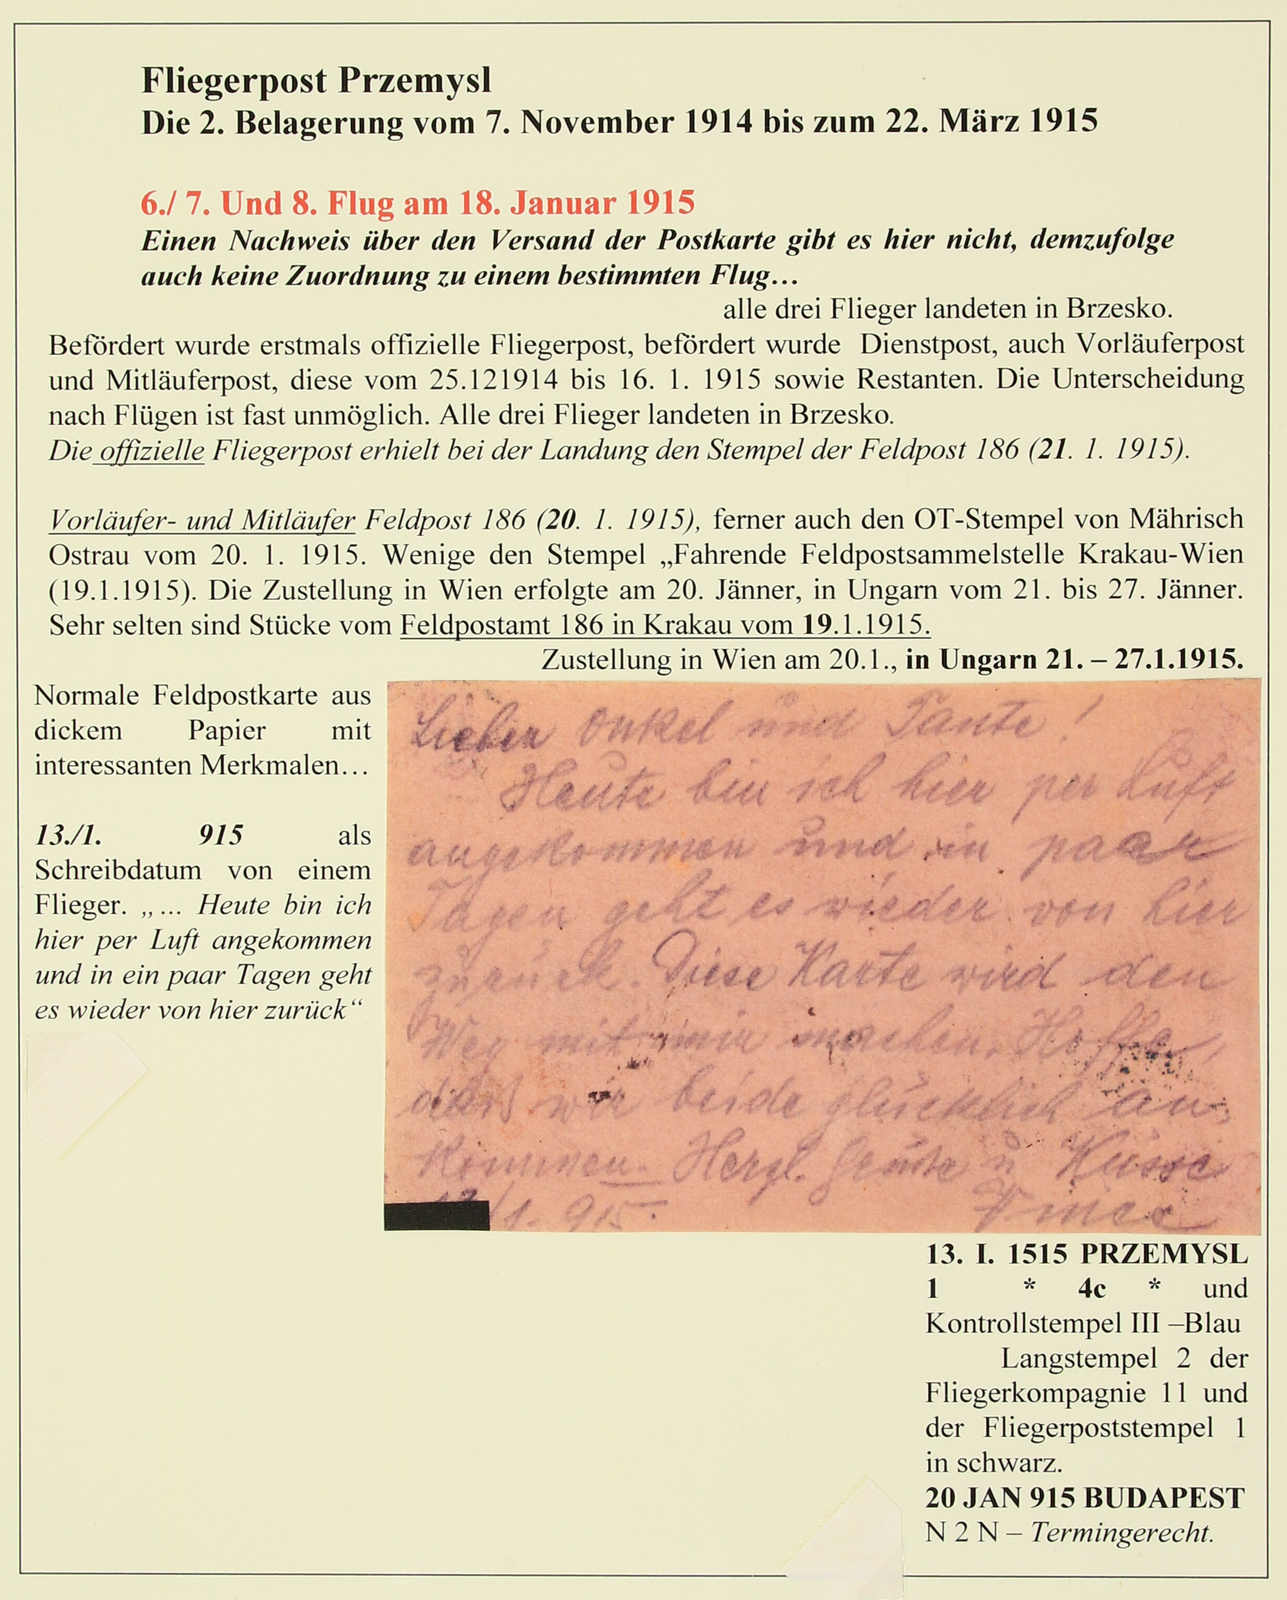 Fliegerpost Przemysl
Die 2. Belagerung vom 7. November 1914 bis zum 22. März 1915
6./ 7. Und 8. Flug am 18. Januar 1915
Einen Nachweis über den Versand der Postkarte gibt es hier nicht, demzufolge
auch keine Zuordnung zu einem bestimmten Flug…
alle drei Flieger landeten in Brzesko.
Befördert wurde erstmals offizielle Fliegerpost, befördert wurde Dienstpost, auch Vorläuferpost
und Mitläuferpost, diese vom 25.121914 bis 16. 1. 1915 sowie Restanten. Die Unterscheidung
nach Flügen ist fast unmöglich. Alle drei Flieger landeten in Brzesko.
Die offizielle Fliegerpost erhielt bei der Landung den Stempel der Feldpost 186 (21. 1. 1915).
Vorläufer- und Mitläufer Feldpost 186 (20. 1. 1915), ferner auch den OT-Stempel von Mährisch
Ostrau vom 20. 1. 1915. Wenige den Stempel „Fahrende Feldpostsammelstelle Krakau-Wien
(19.1.1915). Die Zustellung in Wien erfolgte am 20. Jänner, in Ungarn vom 21. bis 27. Jänner.
Sehr selten sind Stücke vom Feldpostamt 186 in Krakau vom 19.1.1915.
Zustellung in Wien am 20.1., in Ungarn 21. – 27.1.1915.
Normale Feldpostkarte aus
dickem Papier mit
interessanten Merkmalen…
13./1. 915 als
Schreibdatum von einem
Flieger. „… Heute bin ich
hier per Luft angekommen
und in ein paar Tagen geht
es wieder von hier zurück“
Lieber Onkel und Tante!
Heute bin ich hier per Luft
angekommen und in paar
Tagen geht es wieder von hier
zurück. Diese Karte wird den
Weg mit mir machen. Hoffe,
dass wir beide glücklich an-
kommen. Herzl. Grüße u. Küsse
13/1. 915.
13. I. 1515 PRZEMYSL
1 * 4c * und
Kontrollstempel III –Blau
Langstempel 2 der
Fliegerkompagnie 11 und
der Fliegerpoststempel 1
in schwarz.
20 JAN 915 BUDAPEST
N 2 N – Termingerecht.